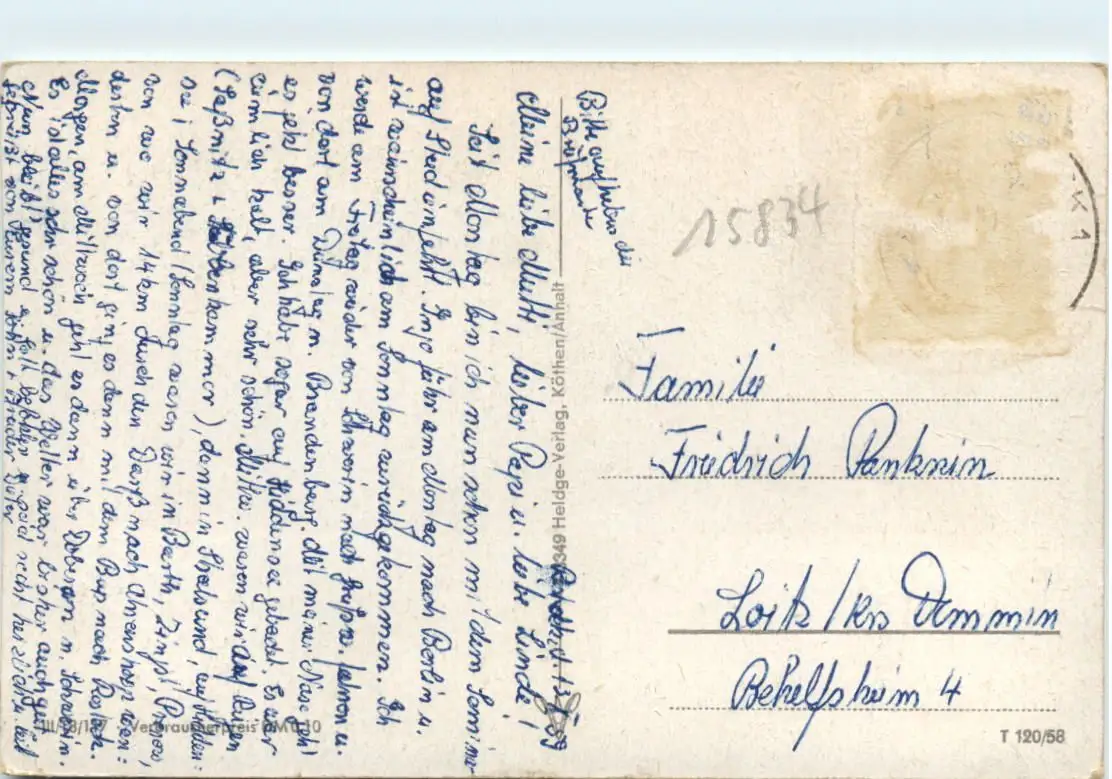 Bitte aufheben die
Briefmarke
Meine liebe Mutti, lieber Papi u. liebe Linde!
Seit Montag bin ich nun schon mit dem Sommer
auf Ingo fuhr am Montag nach Berlin u.
ist wahrscheinlich am Sonntag zurückgekommen. Ich
werde am Freitag wieder von Schwerin nach fahren u.
von dort am Dienstag n. Brandenburg. Mit meiner geht
es jetzt besser. Ich habe sogar auf Hiddensee gebadet. Es war
ziemlich kalt, aber sehr schön. Mittw. waren wir auf Rügen
(Saßnitz & Stubbenkammer), dann in Stralsund, auf Hidden-
see, Sonnabend/Sonntag waren wir in Barth, Zingst,
von wo wir 14 km durch den Darß nach Ahrenshoop
u. von dort ging es dann mit dem Bus nach Rostock.
Morgen am Mittwoch geht es dann über Doberan n. Schwerin.
Es ist alles sehr schön u. das Wetter war bisher auch gut.
Nun bleibt gesund u. seid recht herzlichst
gegrüßt von Eurem Sohn, Bruder
8349 Heldge-Verlag, Köthen/Anhalt
III/18/197 Verbraucherpreis MDN 0,10
15834
Familie
Friedrich Panknin
Loitz / Krs Demmin
Behelfsheim 4
T 120/58